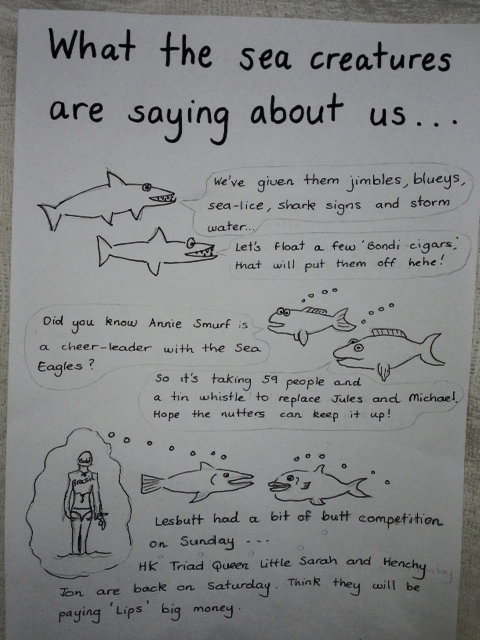 What the sea creatures
are saying about us...
We've given them jimbles, blueys,
sea-lice, shark signs and storm
water...
Let's float a few 'Bondi cigars,'
that will put them off hehe!
Did you know Annie Smurf is
a cheer-leader with the Sea
Eagles?
So it's taking 59 people and
a tin whistle to replace Jules and Michael.
Hope the nutters can keep it up!
Brasil
Lesbutt had a bit of butt competition
on Sunday ---
HK Triad Queen Little Sarah and Henchy
Jon are back on Saturday. Think they will be
paying 'Lips' big money.